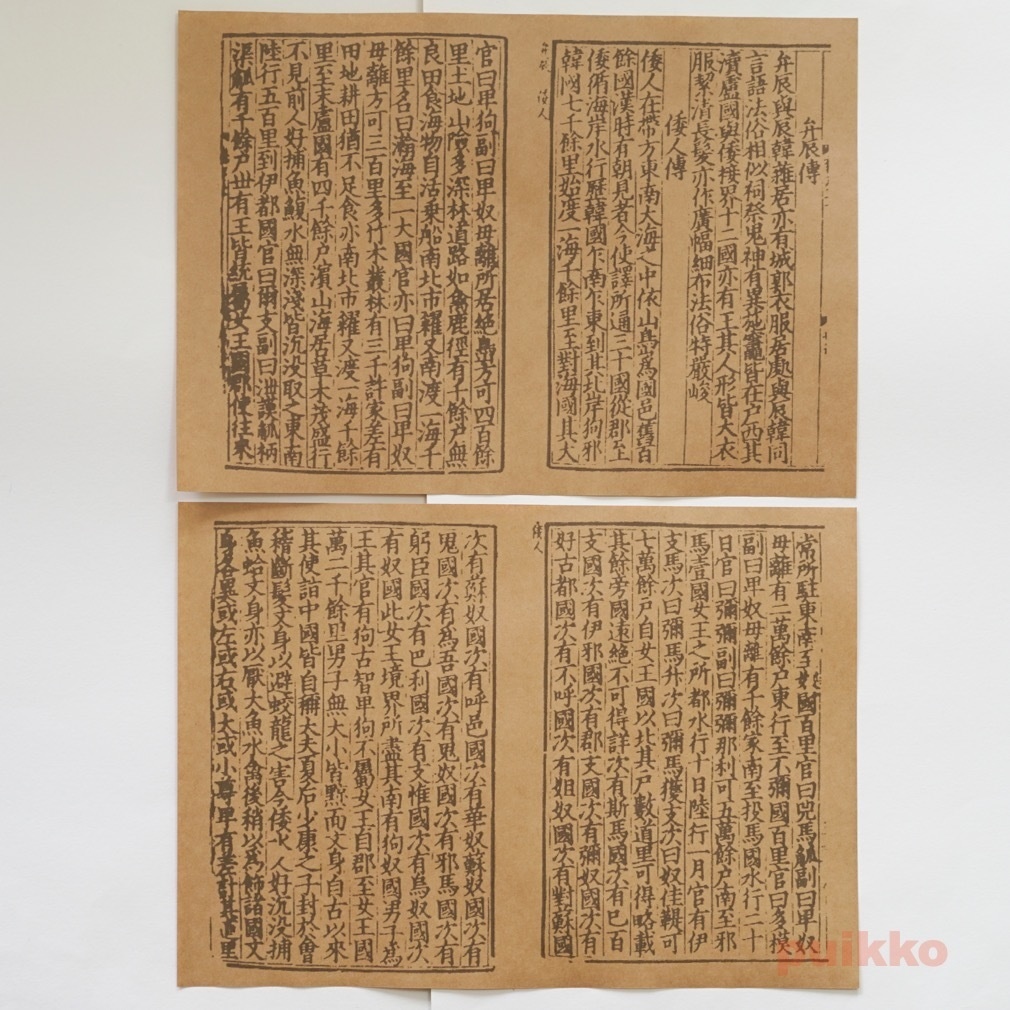 弁辰傳
弁辰與辰韓雜居亦有城郭衣服居處與辰韓同
言語法俗相似祠祭鬼神有異施竈皆在户西其
瀆盧國與倭接界十二國亦有王其人形皆大衣
服絜清長髮亦作廣幅細布法俗特嚴峻
倭人傳
倭人在帶方東南大海之中依山島爲國邑舊百
餘國漢時有朝見者今使譯所通三十國從郡至
倭循海岸水行歷韓國乍南乍東到其北岸狗邪
韓國七千餘里始度一海千餘里至對海國其大
弁辰 倭人
官曰卑狗副曰卑奴母離所居絶島方可四百餘
里土地山險多深林道路如禽鹿徑有千餘户無
良田食海物自活乗船南北市糴又南渡一海千
餘里名曰瀚海至一大國官亦曰卑狗副曰卑奴
母離方可三百里多竹木叢林有三千許家差有
田地耕田猶不足食亦南北市糴又渡一海千餘
里至末盧國有四千餘户濱山海居草木茂盛行
不見前人好捕魚鰒水無深淺皆沉没取之東南
陸行五百里到伊都國官曰爾支副曰泄謨觚柄
渠觚有千餘户丗有王皆統屬女王國郡使往來
常所駐東南至奴國百里官曰兕馬觚副曰卑奴
母離有二萬餘户東行至不彌國百里官曰多模
副曰卑奴母離有千餘家南至投馬國水行二十
日官曰彌彌副曰彌彌那利可五萬餘户南至邪
馬壹國女王之所都水行十日陸行一月官有伊
支馬次曰彌馬升次曰彌馬獲支次曰奴佳鞮可
七萬餘户自女王國以北其户數道里可得略載
其餘旁國遠絶不可得詳次有斯馬國次有已百
支國次有伊邪國次有郡支國次有彌奴國次有
好古都國次有不呼國次有姐奴國次有對蘇國
倭人
次有蘇奴國次有呼邑國次有華奴蘇奴國次有
鬼國次有爲吾國次有鬼奴國次有邪馬國次有
躬臣國次有巴利國次有支惟國次有烏奴國次
有奴國此女王境界所盡其南有狗奴國男子爲
王其官有狗古智卑狗不屬女王自郡至女王國
萬二千餘里男子無大小皆黥面文身自古以來
其使詣中國皆自稱大夫夏后少康之子封於會
稽斷髮文身以避蛟龍之害今倭水人好沉没捕
魚蛤文身亦以厭大魚水禽後稍以爲飾諸國文
身各異或左或右或大或小尊卑有差計其道里
puikko